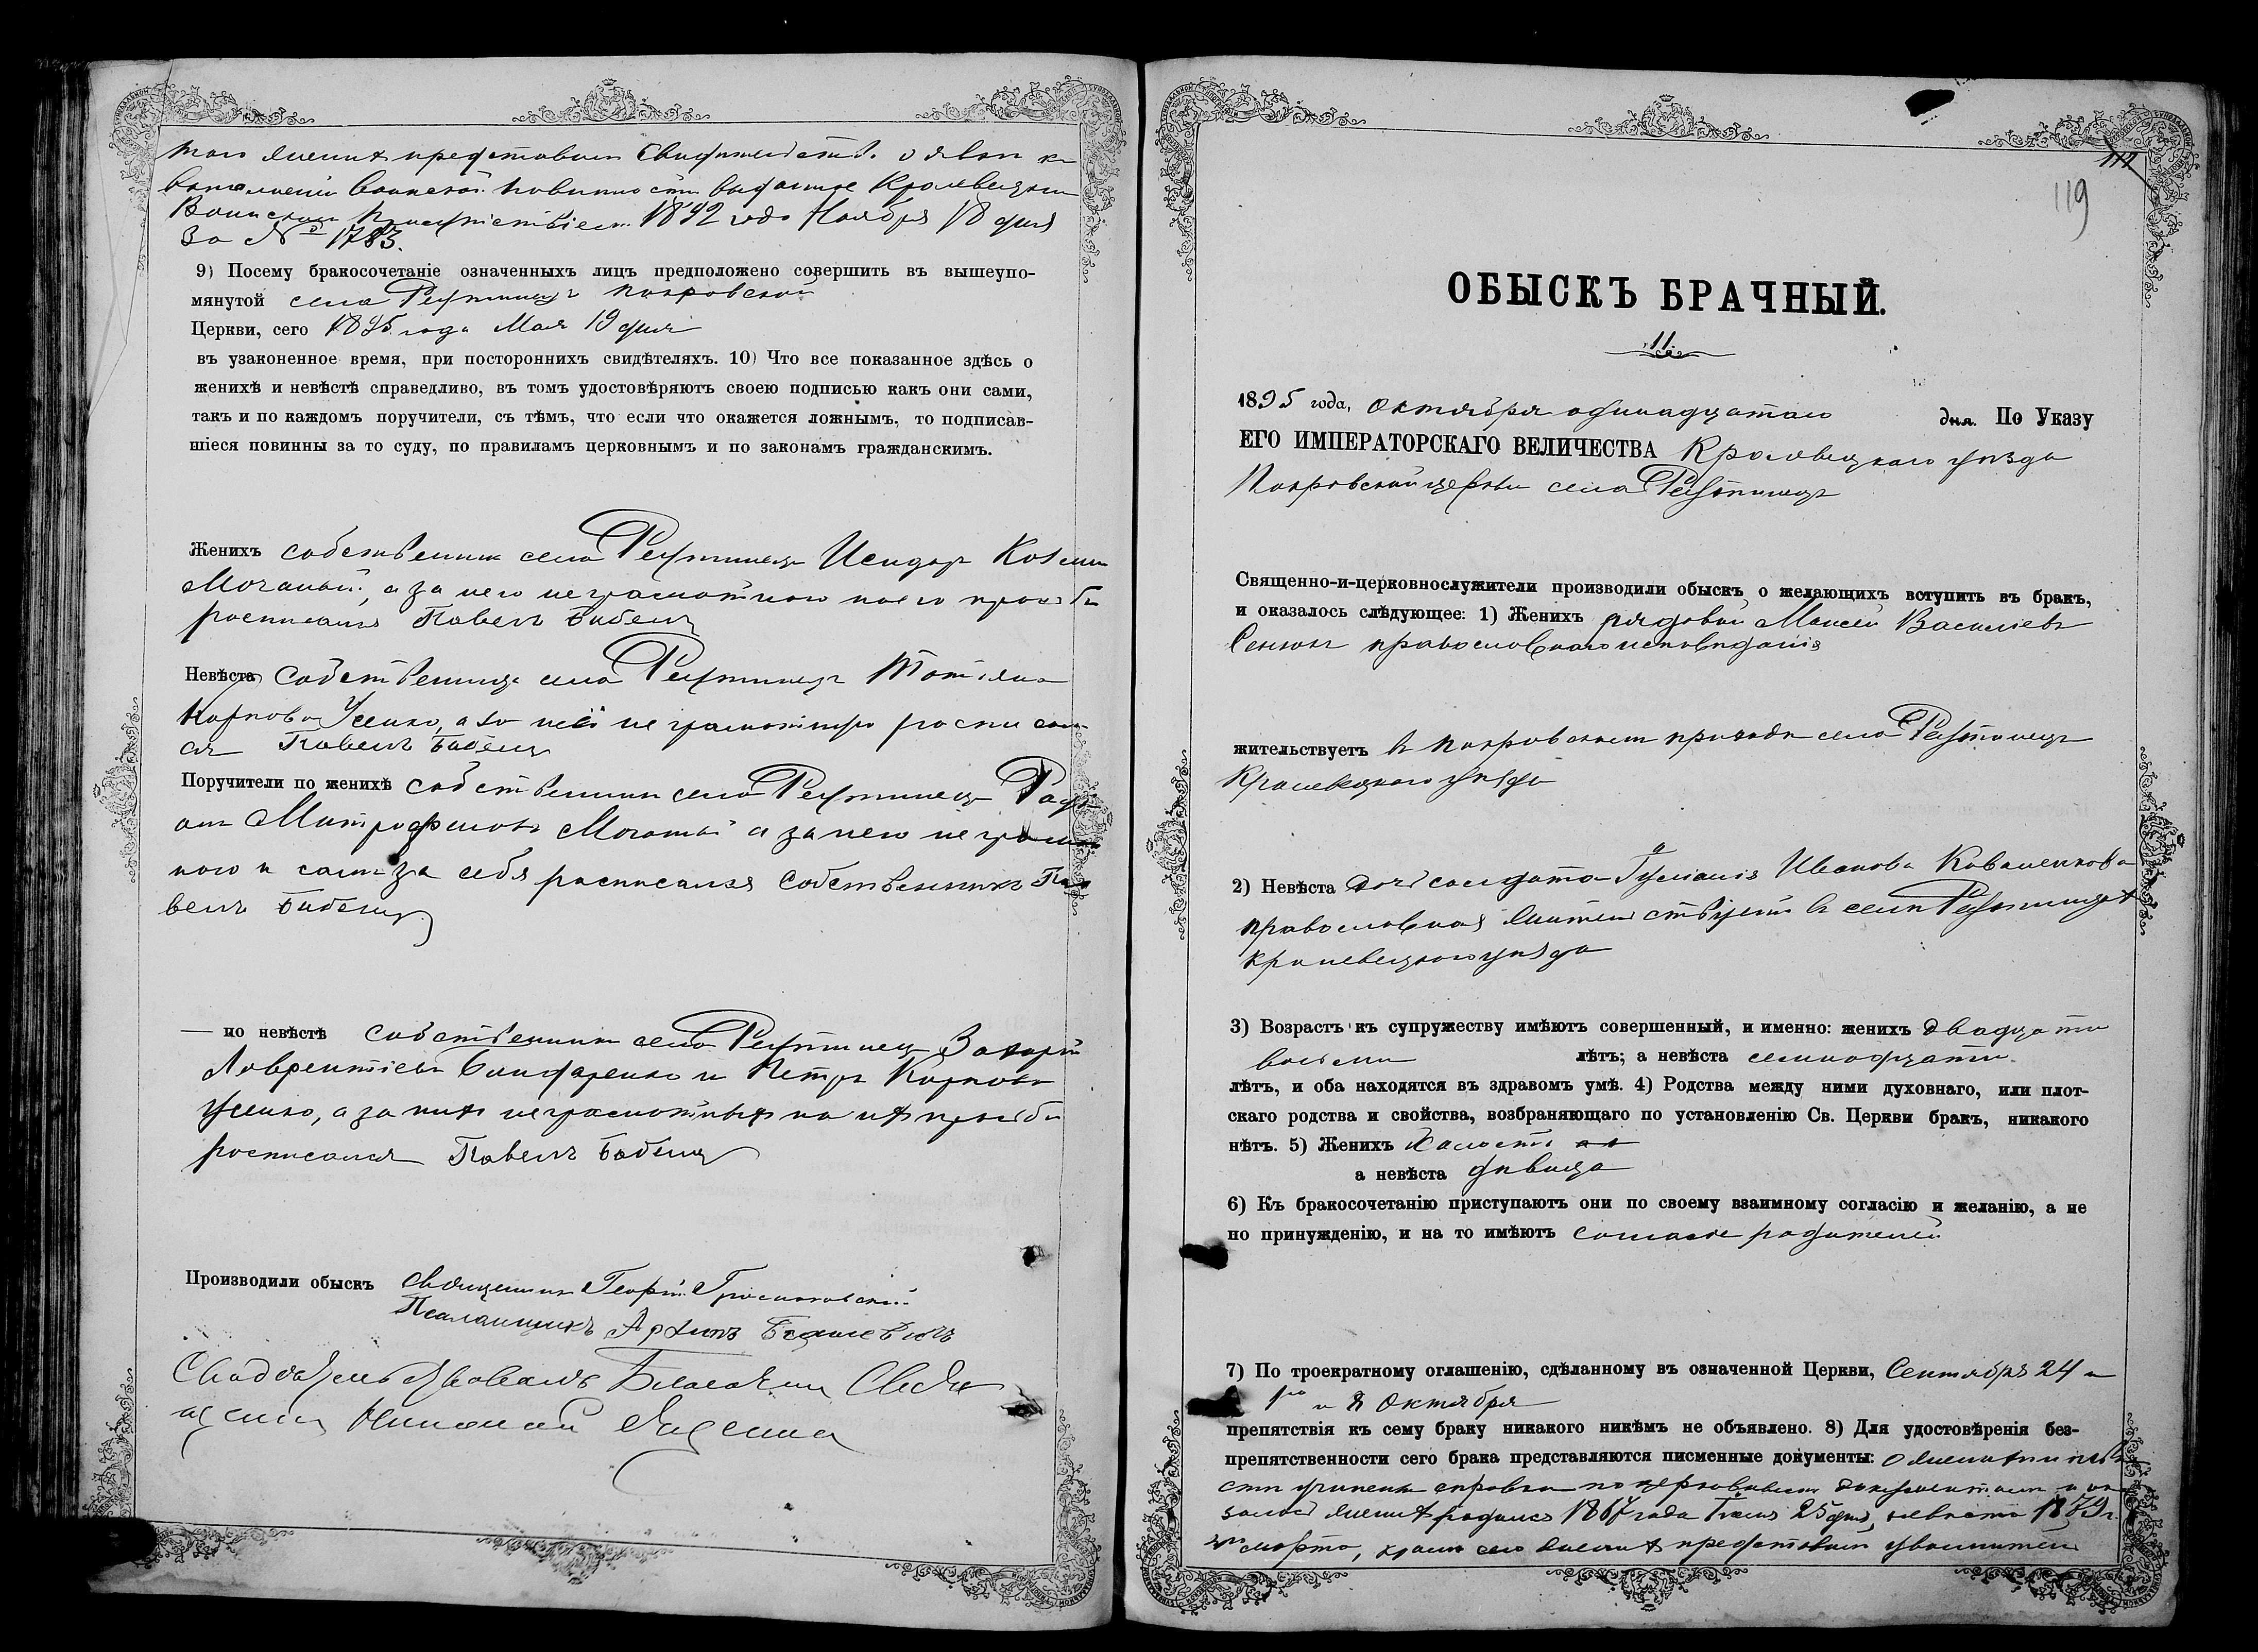 того жених представил свидетельст. о явке к
выполнению воинской повинности выданное Кролевецким
Воинским Присутствіем 1892 года Ноября 18 дня
За № 1783.
9) Посему бракосочетаніе означенныхъ лицъ предположено совершить въ вышеупо-
мянутой села Реутинецъ Покровской
Церкви, сего 1895 года Мая 19 дня
въ узаконенное время, при постороннихъ свидѣтеляхъ. 10) Что все показанное здѣсь о
женихѣ и невѣстѣ справедливо, въ томъ удостовѣряютъ своею подписью какъ они сами,
такъ и по каждомъ поручители, съ тѣмъ, что если что окажется ложнымъ, то подписав-
шіеся повинны за то суду, по правиламъ церковнымъ и по законамъ гражданскимъ.
Женихъ собственник села Реутинецъ Исидор Козмин
Мочаный, а за него неграмотного по его просьбе
росписался Павелъ Бабецъ
Невѣста собственница села Реутинецъ Татіана
Карпова Усенко, а за неё не грамотную росписал
ся Павелъ Бабецъ
Поручители по женихѣ собственники села Реутинецъ Роди
он Митрофанов а за него неграмот
ного и сам за себя росписался собственникъ Па
велъ Бабецъ
— по невѣстѣ собственники села Реутинец Захарій
Лаврентіевъ Бондаренко и Петръ Карповъ
Усенко, а за них неграмотных по их просьбе
росписался Павелъ Бабецъ
Производили обыскъ Священник Георгій
Псаломщикъ Архипъ
112
119
ОБЫСКЪ БРАЧНЫЙ.
11.
1895 года, Октября одинадцатаго дня. По Указу
ЕГО ИМПЕРАТОРСКАГО ВЕЛИЧЕСТВА Кролевецкаго уѣзда
Покровской церкви села Реутинецъ
Священно-и-церковнослужители производили обыскъ о желающихъ вступить въ бракъ,
и оказалось слѣдующее: 1) Женихъ рядовой Моисей Василіевъ
Сенюкъ православнаго исповѣданія
жительствуетъ в Покровском приходѣ села Реутинецъ
Кролевецкаго уѣзда
2) Невѣста дочь солдата Гуліанія Иванова Коваленкова
православная жительствуетъ в селѣ Реутинцах
Кролевецкаго уѣзда
3) Возрастъ къ супружеству имѣютъ совершенный, и именно: женихъ двадцати
восьми лѣтъ; а невѣста семнадцати
лѣтъ, и оба находятся въ здравомъ умѣ. 4) Родства между ними духовнаго, или плот-
скаго родства и свойства, возбраняющаго по установленію Св. Церкви бракъ, никакого
нѣтъ. 5) Женихъ холостъ
а невѣста дѣвица
6) Къ бракосочетанію приступаютъ они по своему взаимному согласію и желанію, а не
по принужденію, и на то имѣютъ согласіе родителей
7) По троекратному оглашенію, сдѣланному въ означенной Церкви, Сентября 24 и
1го и 8 Октября
препятствія къ сему браку никакого никѣмъ не объявлено. 8) Для удостовѣренія без-
препятственности сего брака представляются писменные документы: о женихѣ и невѣ
стѣ учинена справка по церковным документам и ока
залось жених родился 1867 года 25 дня, невѣста 1879 г.
марта, кромѣ сего жених представил увольнител